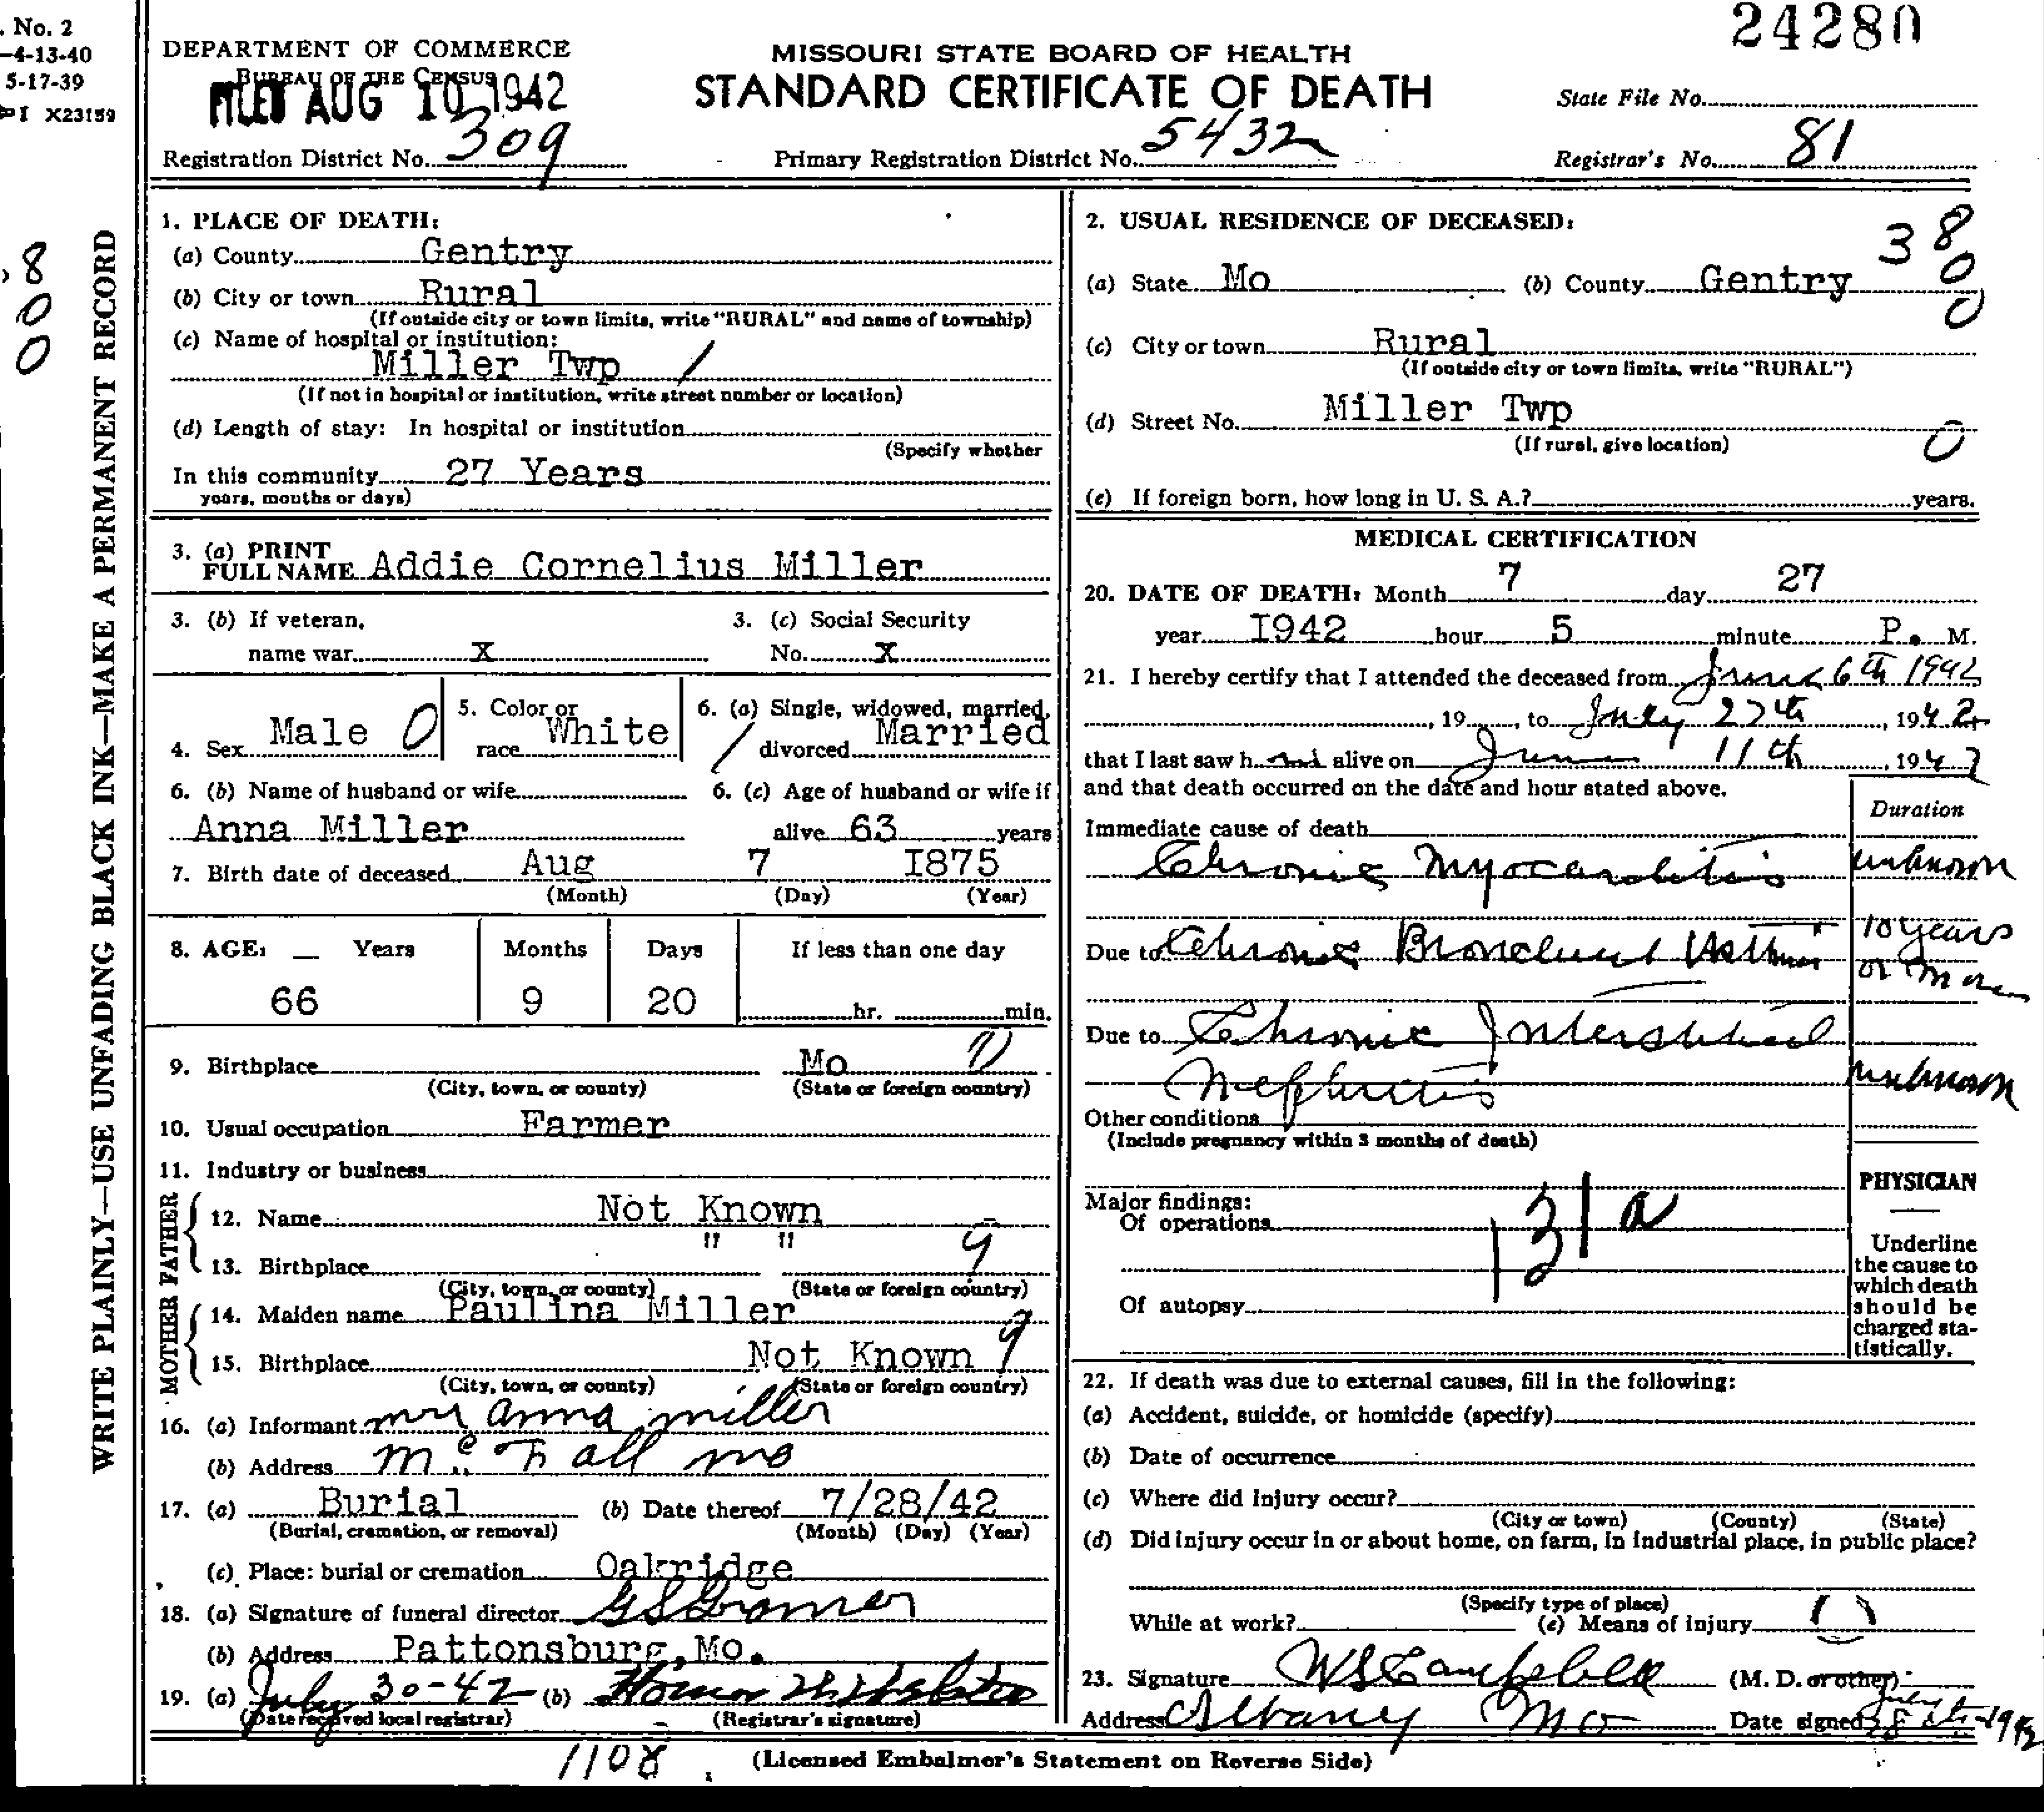 . No. 2
-4-13-40
5-17-39
I X23159
24280
DEPARTMENT OF COMMERCE
BUREAU OF THE CENSUS
FILED AUG 10 1942
MISSOURI STATE BOARD OF HEALTH
STANDARD CERTIFICATE OF DEATH
State File No.
Registration District No. 309
Primary Registration District No. 5432
Registrar's No. 81
8
0
0
WRITE PLAINLY—USE UNFADING BLACK INK—MAKE A PERMANENT RECORD
1. PLACE OF DEATH:
(a) County Gentry
(b) City or town Rural
(If outside city or town limits, write "RURAL" and name of township)
(c) Name of hospital or institution:
Miller Twp /
(If not in hospital or institution, write street number or location)
(d) Length of stay: In hospital or institution
(Specify whether
In this community 27 Years
years, months or days)
3. (a) PRINT
FULL NAME Addie Cornelius Miller
3. (b) If veteran,
name war X
3. (c) Social Security
No. X
4. Sex Male 0
5. Color or
race White
6. (a) Single, widowed, married,
/ divorced Married
6. (b) Name of husband or wife
Anna Miller
6. (c) Age of husband or wife if
alive 63 years
7. Birth date of deceased Aug 7 I875
(Month) (Day) (Year)
8. AGE: — Years Months Days If less than one day
66 9 20 hr. min.
9. Birthplace Mo
(City, town, or county) (State or foreign country)
10. Usual occupation Farmer
11. Industry or business
FATHER
12. Name Not Known
13. Birthplace " " 9
(City, town, or county) (State or foreign country)
MOTHER
14. Maiden name Paulina Miller
15. Birthplace Not Known 9
(City, town, or county) (State or foreign country)
16. (a) Informant Mrs Anna Miller
(b) Address McFall Mo
17. (a) Burial (b) Date thereof 7/28/42
(Burial, cremation, or removal) (Month) (Day) (Year)
(c) Place: burial or cremation Oakridge
18. (a) Signature of funeral director
(b) Address Pattonsburg, Mo.
19. (a) July 30-42 (b)
(Date received local registrar) (Registrar's signature)
2. USUAL RESIDENCE OF DECEASED:
38
0
0
(a) State Mo (b) County Gentry
(c) City or town Rural
(If outside city or town limits, write "RURAL")
(d) Street No. Miller Twp
(If rural, give location)
0
(e) If foreign born, how long in U. S. A.? years.
MEDICAL CERTIFICATION
20. DATE OF DEATH: Month 7 day 27
year I942 hour 5 minute P. M.
21. I hereby certify that I attended the deceased from June 6th 1942
, 19 , to July 27th, 1942
that I last saw him alive on June 11th, 1942
and that death occurred on the date and hour stated above.
Duration
Immediate cause of death
Chronic Myocarditis unknown
Due to Chronic Bronchial Asthma 10 years
or more
Due to Chronic Interstitial
Nephritis unknown
Other conditions
(Include pregnancy within 3 months of death)
Major findings:
Of operations
131a
Of autopsy
PHYSICIAN
Underline
the cause to
which death
should be
charged sta-
tistically.
22. If death was due to external causes, fill in the following:
(a) Accident, suicide, or homicide (specify)
(b) Date of occurrence
(c) Where did injury occur?
(City or town) (County) (State)
(d) Did injury occur in or about home, on farm, in industrial place, in public place?
(Specify type of place)
While at work? (e) Means of injury
23. Signature W S Campbell (M. D. or other)
Address Albany Mo Date signed July 28th-1942
1108
(Licensed Embalmer's Statement on Reverse Side)